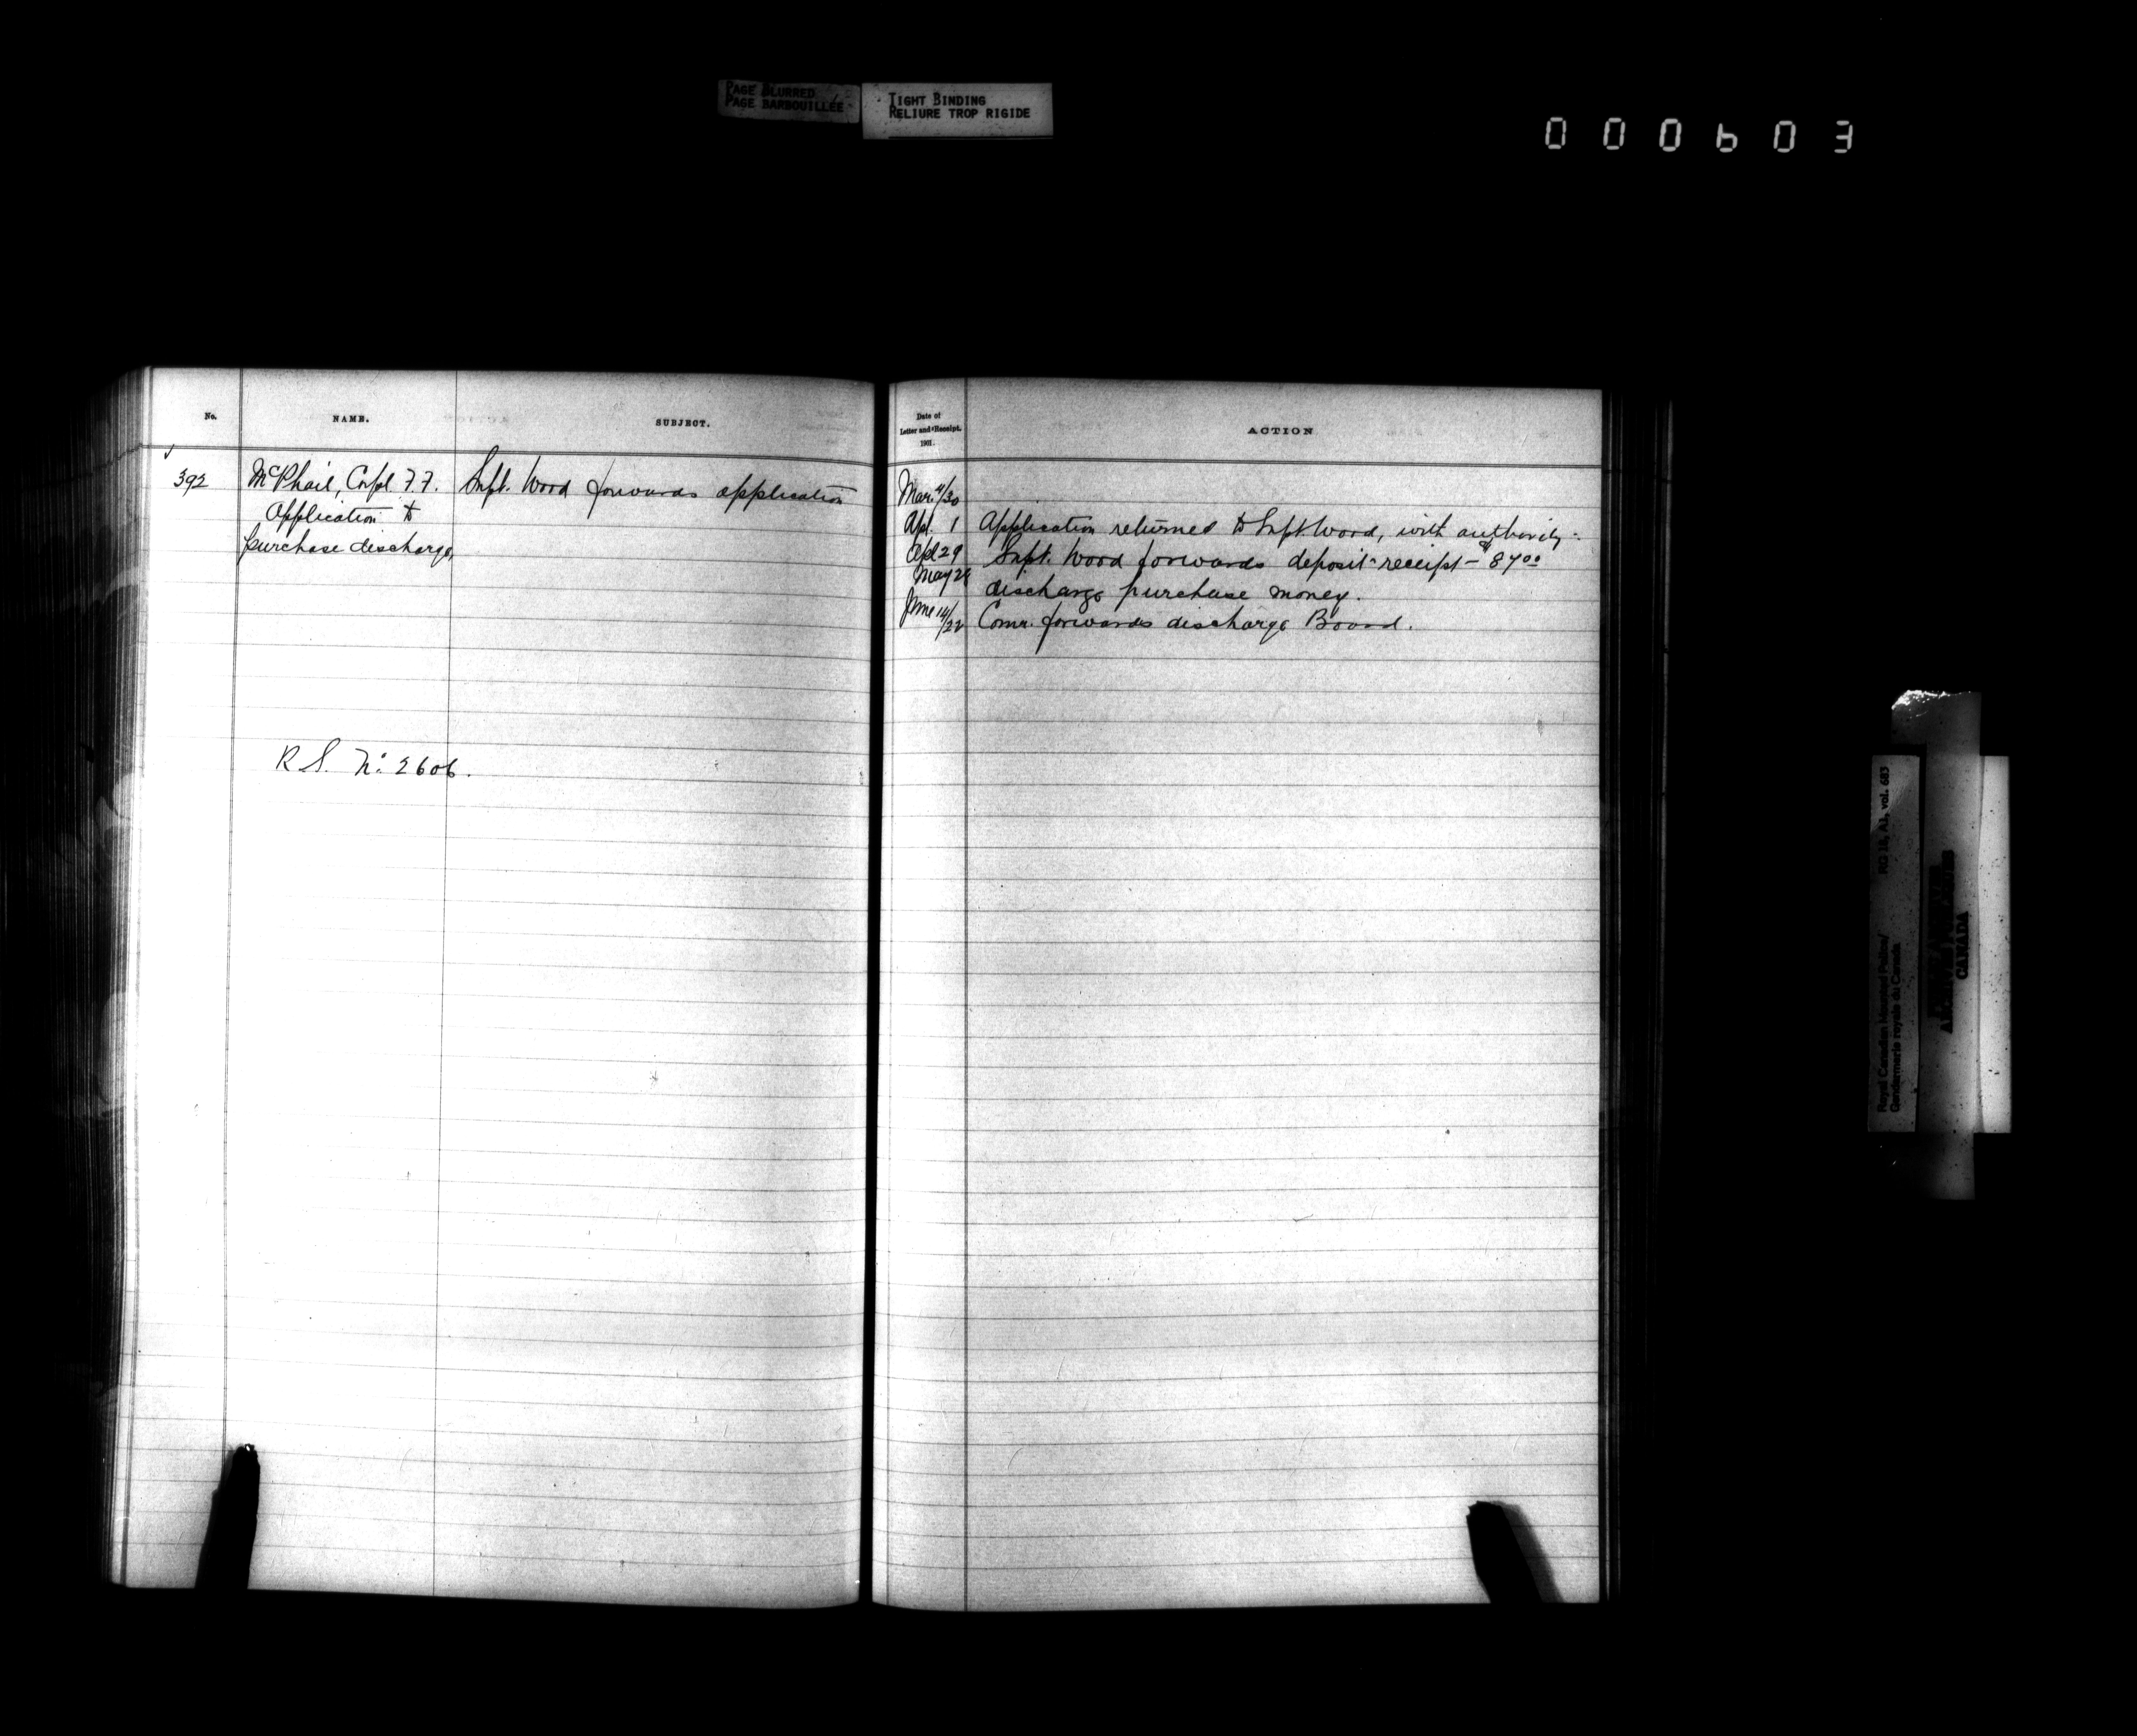 PAGE BLURRED
PAGE BARBOUILLÉE
TIGHT BINDING
RELIURE TROP RIGIDE
000603
No.
NAME.
SUBJECT.
392
McPhail, Corpl. F.F.
Application to
purchase discharge,
Supt. Wood forwards application
R.S. No. 2606.
Date of
Letter and Receipt.
1901.
ACTION
Mar. 4/30
Apl. 1 Application returned to Supt. Wood, with authority.
Apl 29 Supt. Wood forwards deposit receipt — $87.00
May 28 discharge purchase money.
June 14/22 Comr. forwards discharge Board.
Royal Canadian Mounted Police/
Gendarmerie royale du Canada
RG 18, A1, vol. 683
CANADA